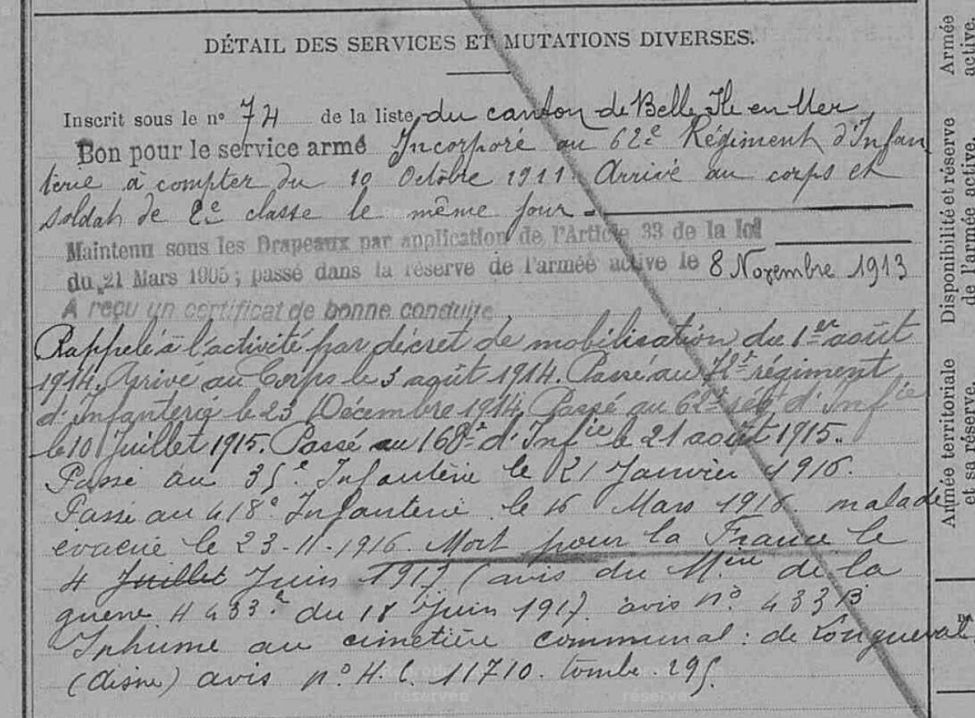 DÉTAIL DES SERVICES ET MUTATIONS DIVERSES.
Inscrit sous le n° 74 de la liste du canton de Belle Ile en Mer
Bon pour le service armé Incorporé au 62e Régiment d'Infan
terie à compter du 10 Octobre 1911. Arrivé au corps et
soldat de 2e classe le même jour.
Maintenu sous les Drapeaux par application de l'Article 33 de la loi
du 21 Mars 1905; passé dans la réserve de l'armée active le 8 Novembre 1913
A reçu un certificat de bonne conduite
Rappelé à l'activité par décret de mobilisation du 1er août
1914. Arrivé au Corps le 3 août 1914. Passé au régiment
d'Infanterie le 23 Décembre 1914. Passé au 62e régt d'Infie
le 10 Juillet 1915. Passé au 168e d'Infie le 21 août 1915.
Passé au 35e Infanterie le 21 Janvier 1916.
Passé au 418e Infanterie le 16 Mars 1916. malade
évacué le 23-11-1916. Mort pour la France le
4 Juillet Juin 1917 (avis du Mère de la
guerre H 433 du 18 Juin 1917. avis n° 433B
Inhumé au cimetière communal: de Longueval
(Aisne) avis n° H.C. 11710. tombe 295.
Armée active.
Disponibilité et réserve de l'armée active.
Armée territoriale et sa réserve.